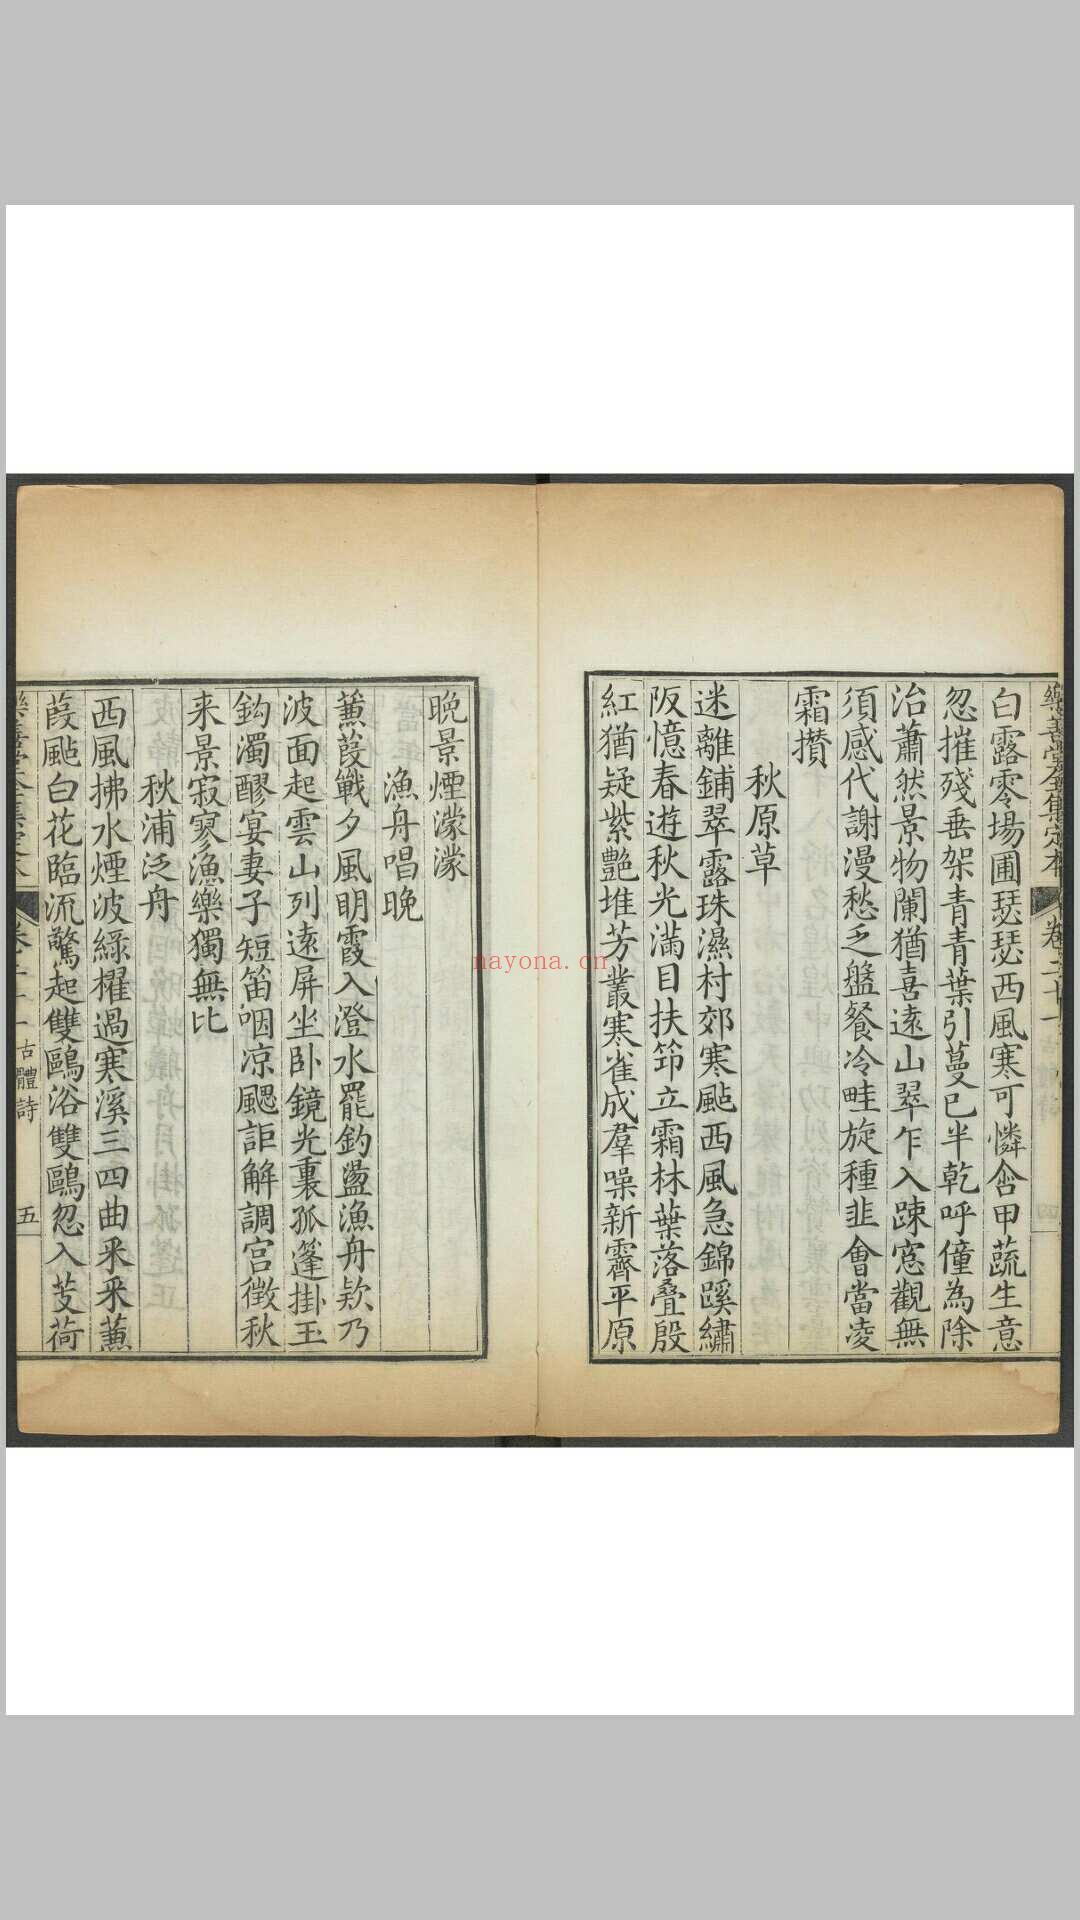 樂善堂全集定本 卷二十一
白露零場圃瑟瑟西風寒可憐含甲蔬生意
忽摧殘垂架青青葉引蔓已半乾呼僮為除
治蕭然景物闌猶喜遠山翠乍入踈窓觀無
須感代謝漫愁乏盤餐冷畦旋種韭會當凌
霜攅
秋原草
迷離鋪翠露珠濕村郊寒颭西風急錦蹊繡
阪憶春遊秋光滿目扶筇立霜林葉落疊殷
紅猶疑紫艷堆芳叢寒雀成羣噪新霽平原
晚景煙濛濛
漁舟唱晚
蒹葭戰夕風明霞入澄水罷釣盪漁舟欵乃
波面起雲山列遠屏坐卧鏡光裏孤篷掛玉
鈎濁醪宴妻子短笛咽凉颸詎解調宮徵秋
来景寂寥漁樂獨無比
秋浦泛舟
西風拂水煙波緑櫂過寒溪三四曲釆釆蒹
葭颭白花臨流驚起雙鷗浴雙鷗忽入芰荷
樂善堂全集定本 卷二十一 古體詩 五
nayona.cn